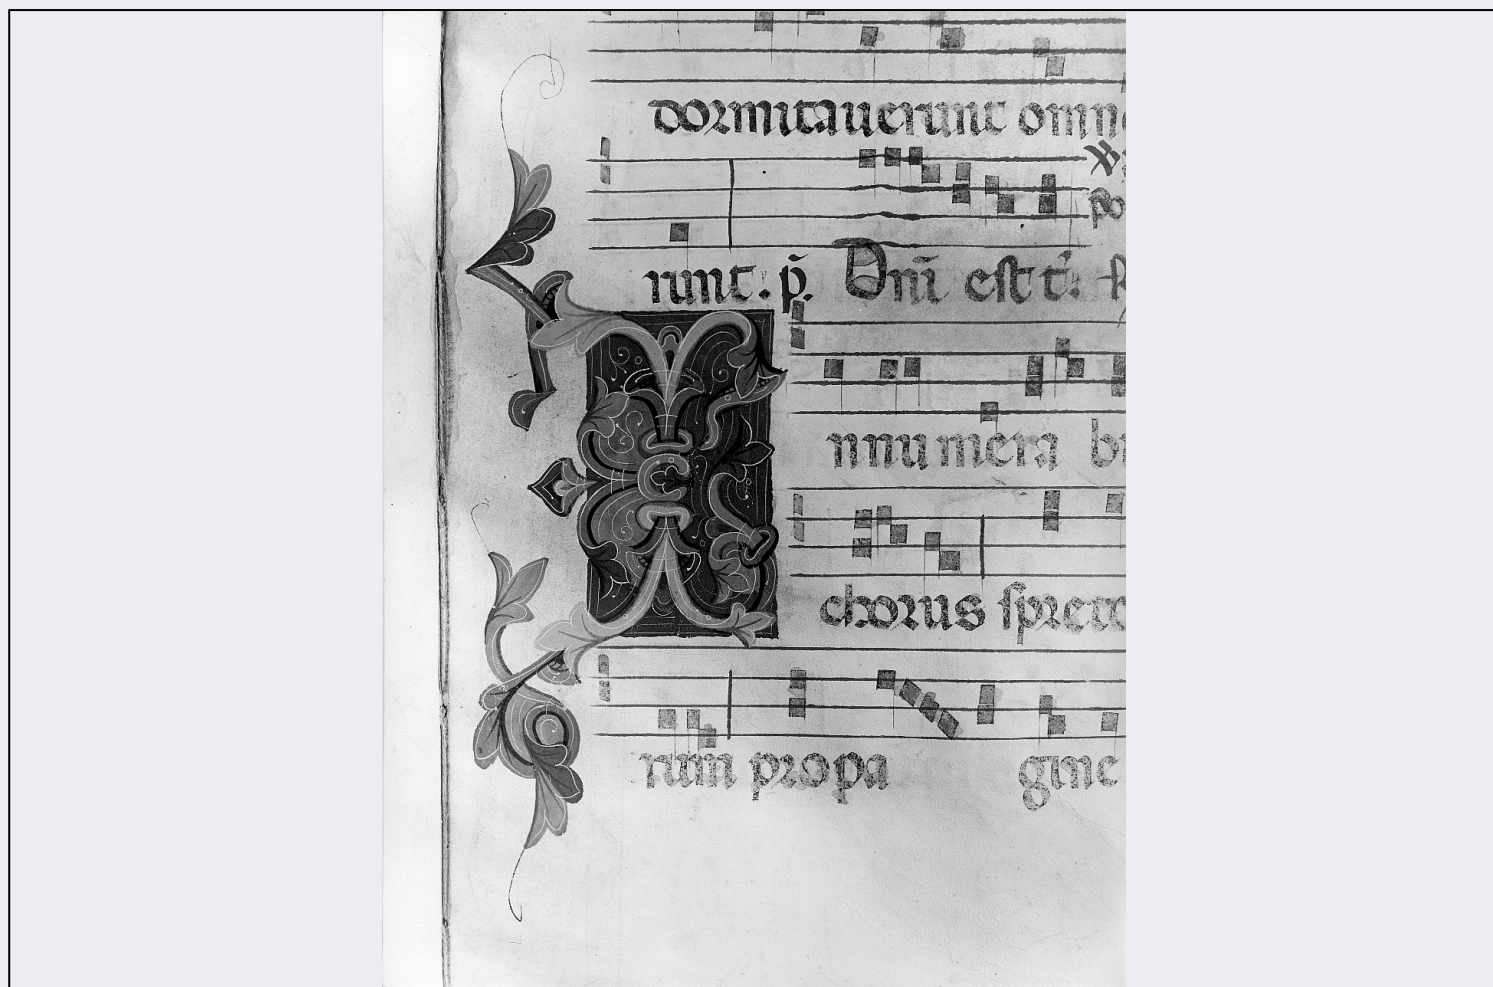 dormitauerunt omne
po
runt. p̄. Dn̄i est t̄: R
I
nnumera bi
chorus spreto
rum propa gine